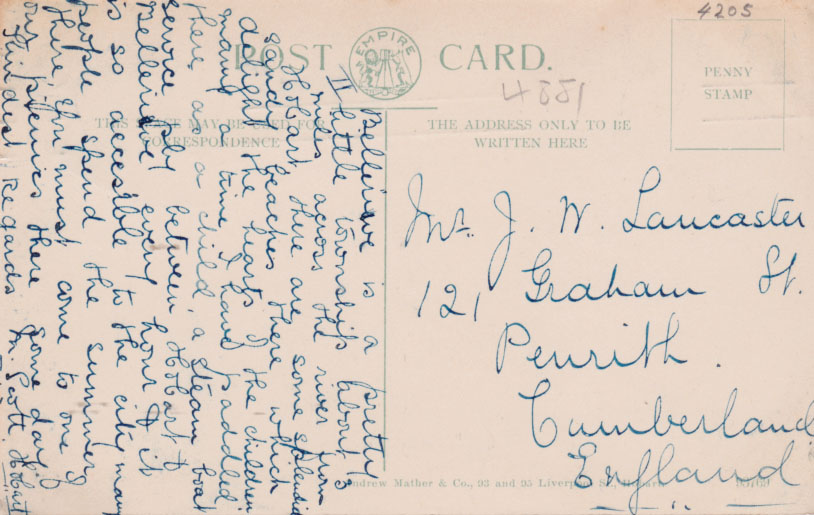 4205
POST CARD.
EMPIRE
4881
PENNY
STAMP
THIS SPACE MAY BE USED FOR
CORRESPONDENCE
THE ADDRESS ONLY TO BE
WRITTEN HERE
II
Bellerive is a pretty
little township about 3
miles across the river from
Hobart there are some splendid
sand beaches there which
delight the hearts of the children
many a time I have paddled
there as a child a steam boat
service by between Hobart &
Bellerive every hour & it
is so accesible to the city many
people spend the summer
there, you must come to one of
our picnics there some day.
Kindest Regards M Scott. Hobart
Mr. J. W. Lancaster
121 Graham St.
Penrith.
Cumberland
England
Andrew Mather & Co., 93 and 95 Liverpool St., Hobart